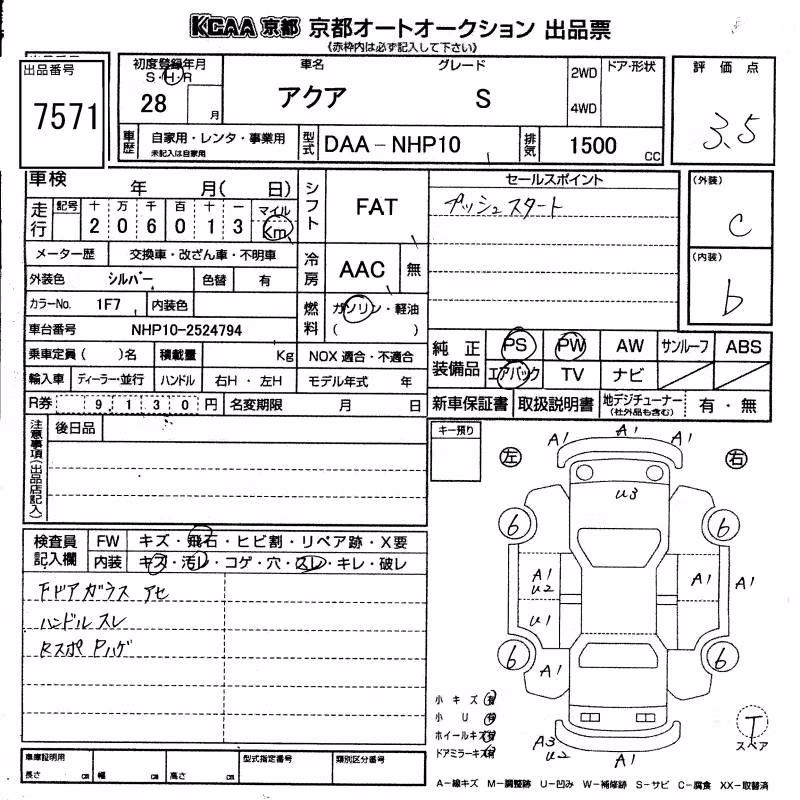 KCAA 京都 京都オートオークション 出品票
《赤枠内は必ず記入して下さい》
出品番号
7571
初度登録年月
S・H・R
28 月
車名 グレード
アクア S
2WD
4WD
ドア・形状
評価点
3.5
車歴 自家用・レンタ・事業用
未記入は自家用
型式 DAA-NHP10
排気 1500 CC
車検 年 月( 日)
走行 記号 十 万 千 百 十 一 マイル
2 0 6 0 1 3 Km
シフト FAT
セールスポイント
プッシュスタート
(外装)
C
(内装)
b
メーター歴 交換車・改ざん車・不明車
冷房 AAC 無
外装色 シルバー 色替 有
カラーNo. 1F7 内装色
燃料 ガソリン・軽油
( )
車台番号 NHP10-2524794
乗車定員( )名 積載量 Kg NOX 適合・不適合
輸入車 ディーラー・並行 ハンドル 右H・左H モデル年式 年
純正装備品 PS PW AW サンルーフ ABS
エアバック TV ナビ
R券 9130円 名変期限 月 日
新車保証書 取扱説明書 地デジチューナー(社外品も含む) 有・無
注意事項(出品店記入)
後日品
キー預り
左 右
A1 A1 A1
U3
6 6
A1 U2 A1 A1
U1
6 6
A1
A3 U2 A1
検査員記入欄 FW キズ・飛石・ヒビ割・リペア跡・X要
内装 キズ・汚レ・コゲ・穴・スレ・キレ・破レ
Fドアガラスアセ
ハンドルスレ
RスポPハゲ
小キズ 有
小U 有
ホイールキズ 有
ドアミラーキズ 有
T
スペア
車庫証明用
長さ cm 幅 cm 高さ cm
型式指定番号 類別区分番号
A-線キズ M-調整跡 U-凹み W-補修跡 S-サビ C-腐食 XX-取替済